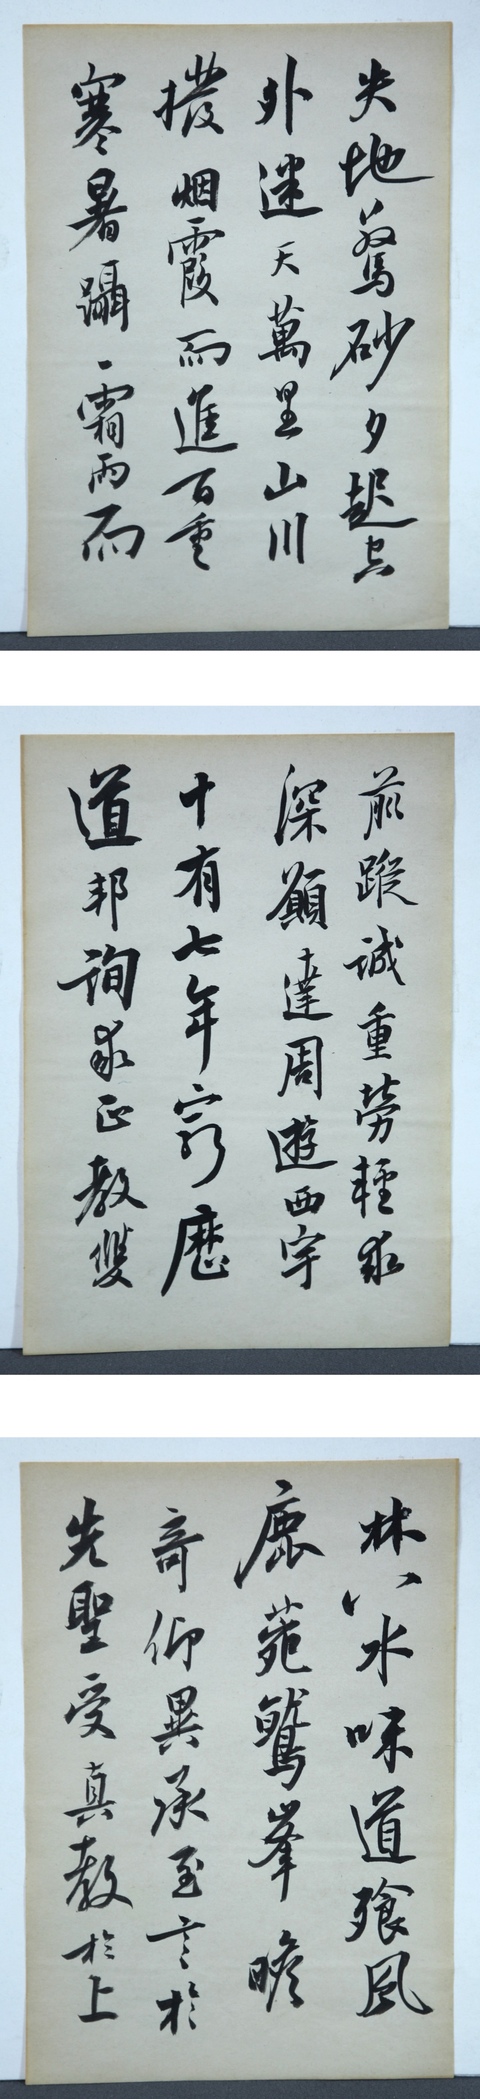 失地驚砂夕起空
外迷天萬里山川
撥烟霞而進百重
寒暑躡霜雨而
前蹤誠重勞輕求
深願達周遊西宇
十有七年窮歷
道邦詢求正教雙
林八水味道飡風
鹿菀鷲峯瞻
奇仰異承至言於
先聖受真教於上